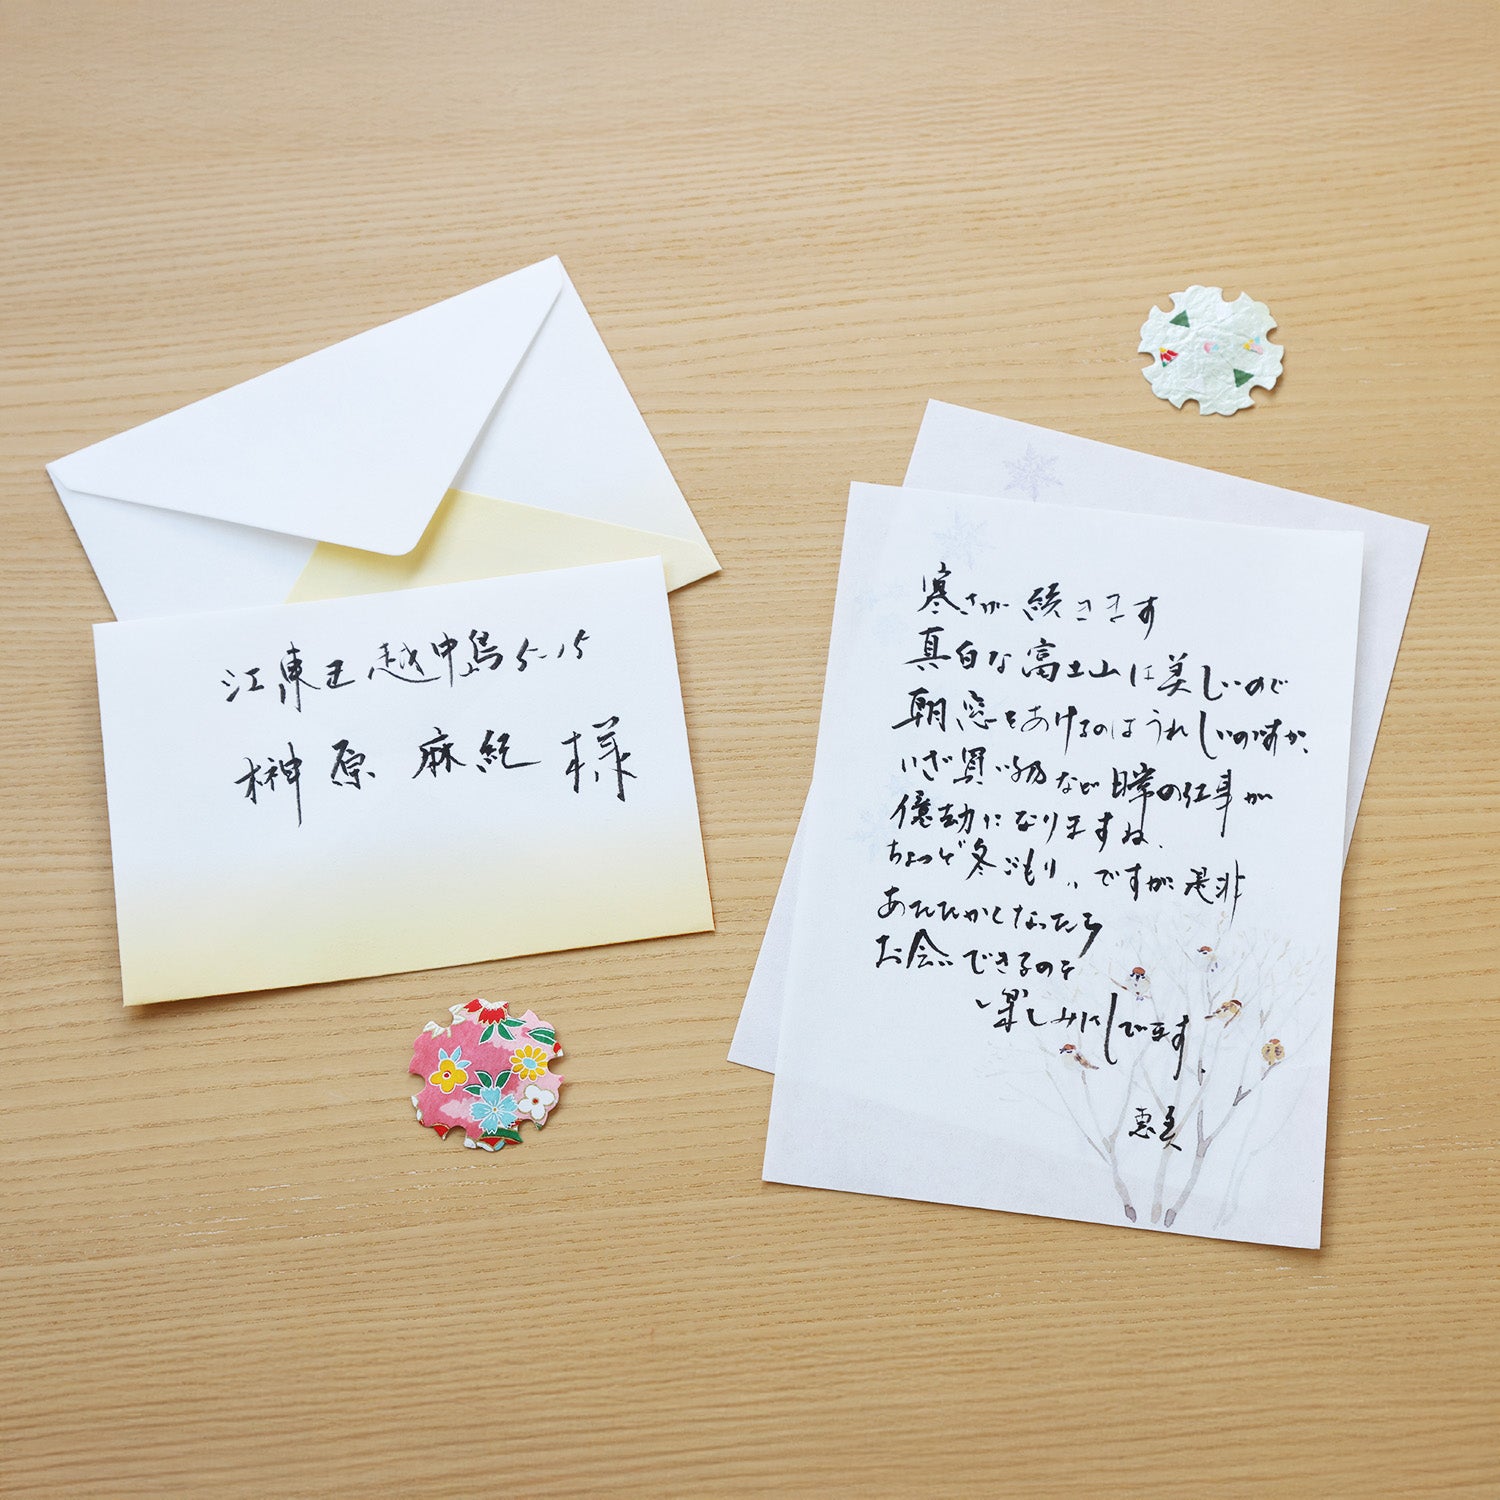 江東区越中島5-15
榊原 麻紀 様
寒さが続きます
真白な富士山は美しいので
朝窓をあけるのはうれしいのですが、
いざ買い物など日常の仕事が
億劫になりますね、
ちょっぞ冬ごもり、、ですが是非
あたたかくなったら
お会いできるのを
楽しみにしてます、
恵美